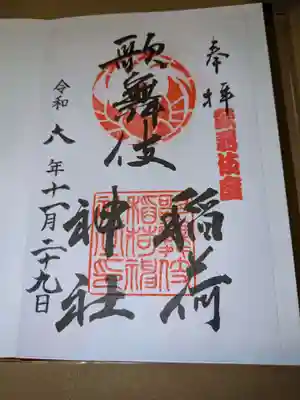 奉拝
歌舞伎
稲荷
神社
令和六年十一月二十九日